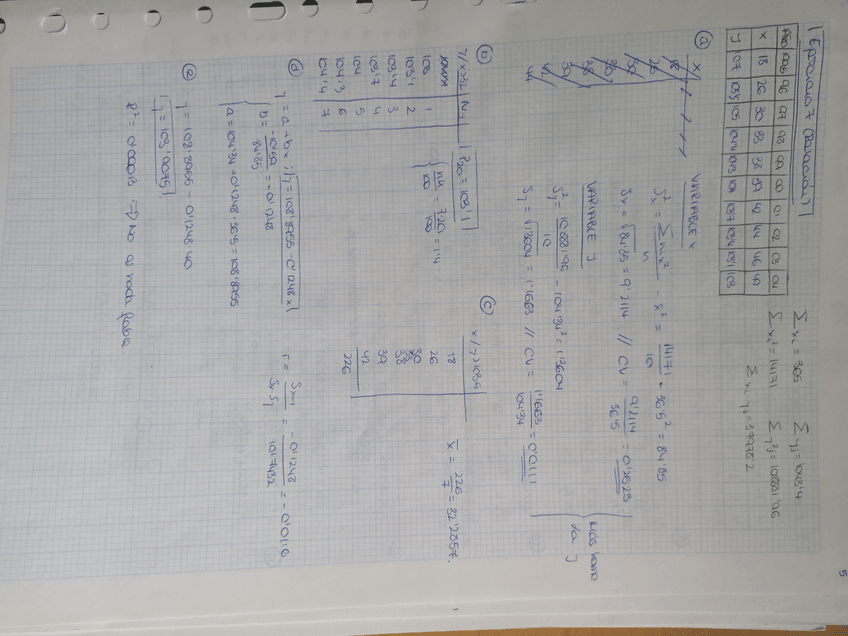 5
Ejercicio 7 (Relación 2)
Año 1995 96 97 98 99 00 01 02 03 04
x 18 26 30 33 38 39 42 44 46 49
y 107 105 105 104'4 104'3 104 103'7 103'4 103'1 103
Σ xi = 365 Σ yj = 1043'4
Σ xi² = 14171 Σ yj² = 108881'96
Σ xi · yj = 37975'2
a) x
18
26
30
33
38
39
42
44
VARIABLE x
Sx² = Σ ni xi² / n - x̄² = 14171 / 10 - 36'5² = 84'85
Sx = √84'85 = 9'2114 // CV = 9'2114 / 36'5 = 0'2523
VARIABLE y
Sy² = 108881'96 / 10 - 104'34² = 1'3604
Sy = √1'3604 = 1'1663 // CV = 1'1663 / 104'34 = 0'0111
Más homo
y
b) y/x>32 Nj
103 1
103'1 2
103'4 3
103'7 4
104 5
104'3 6
104'4 7
P20 = 103'1
= 7·20 / 100 = 1'4
c) x/y>103'5
18
26
30
33
38
39
42
226
x̄ = 226 / 7 = 32'2857.
d) y = a + bx ; y = 108'8955 - 0'1248 x
b = / 84'85 = -0'1248
a = 104'34 + 0'1248 · 36'5 = 108'8955
r = Sxy / Sx Sy = -0'1248 / 10'7432 = -0'0116
e) y = 108'8955 - 0'1248 · 40
y = 103'9075
R² = 0'00013 ⇒ No es nada fiable